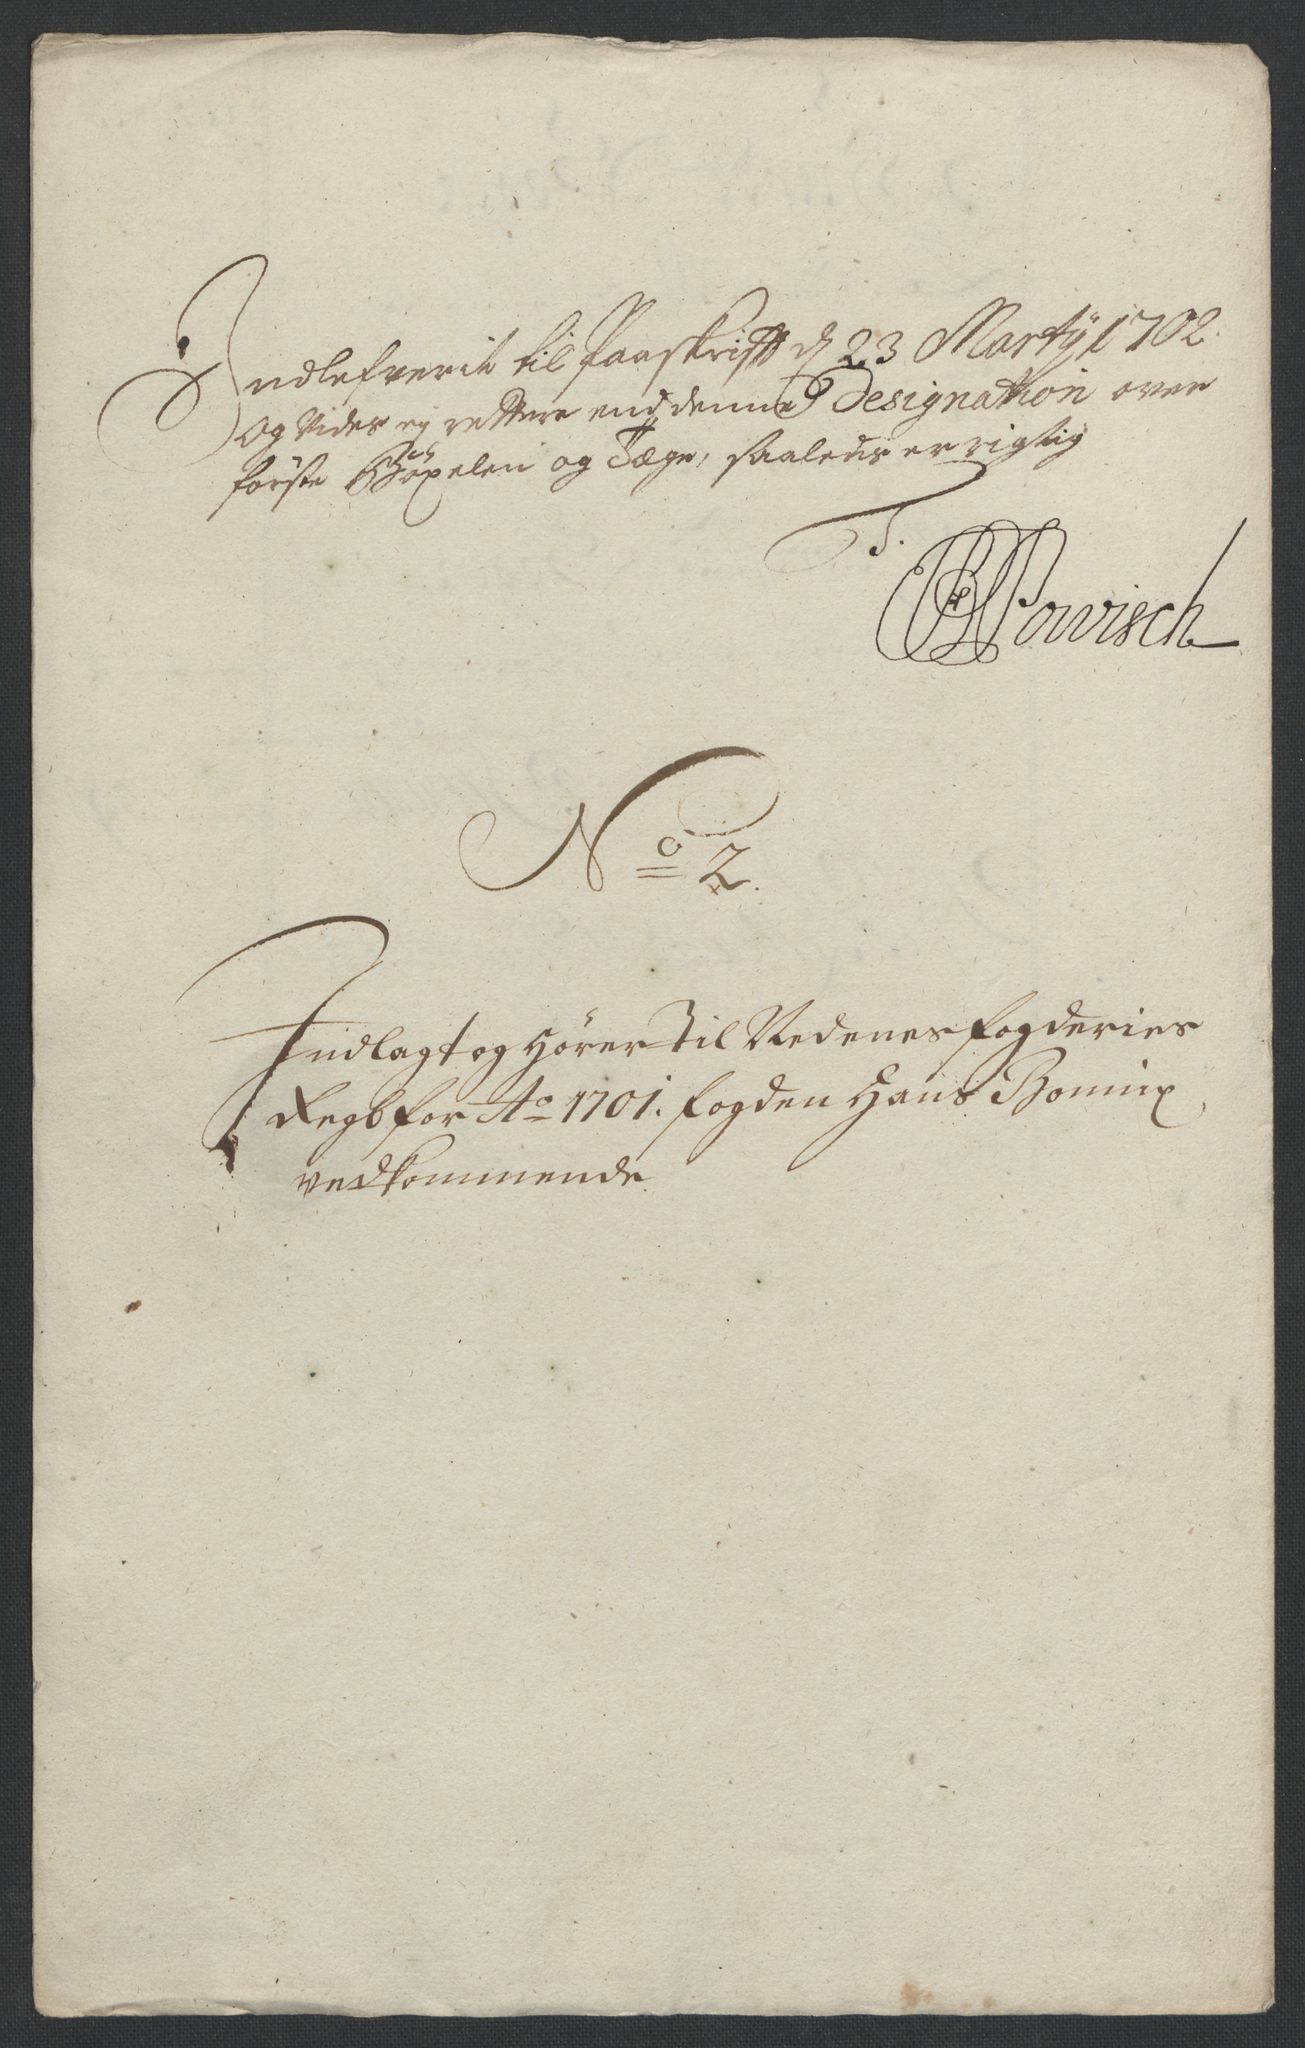 Indlefverit til Paaskrifft d 23 Martÿ 1702
og vides ej rettere end denne Designation over
første Bøxelen og Tæge, saaleds er rigtig
T.
Powisch
No 2.
Indlagt og hører Til Nedenes fogderies
Regb for Ao 1701. fogden Hans Bomix
vedkommende